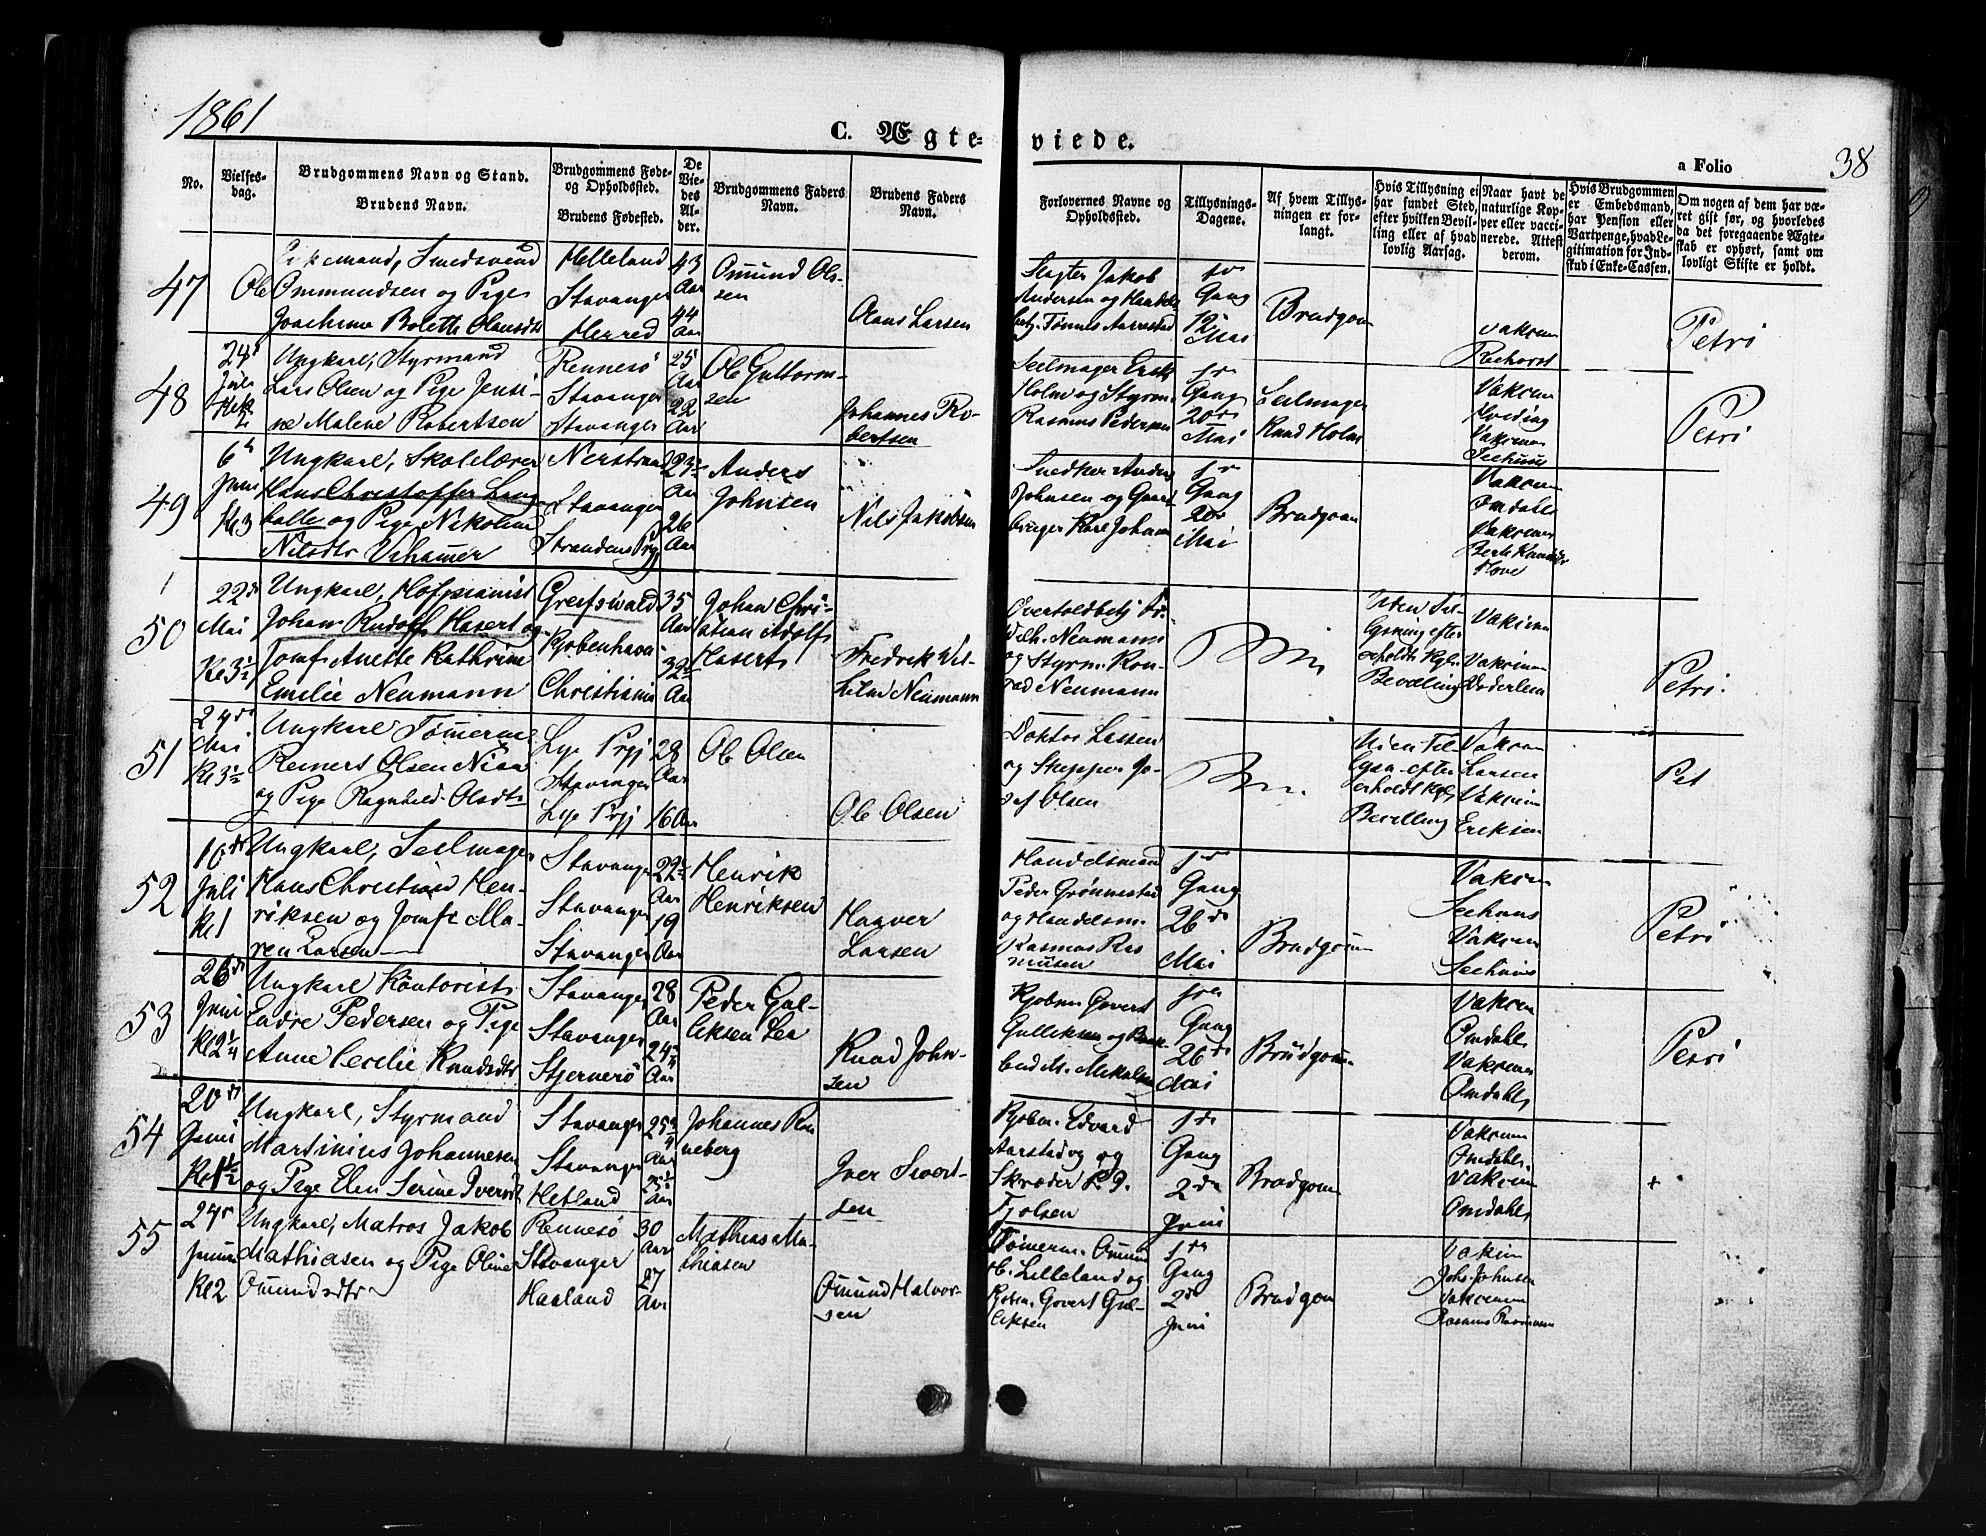 1861
C. Ægte-
viede.
a Folio
38
No.
Vielses-
dag.
Brudgommens Navn og Stand.
Brudens Navn.
Brudgommens Føde-
og Opholdssted.
Brudens Fødested.
De
Vie-
des
Al-
der.
Brudgommens Faders
Navn.
Brudens Faders
Navn.
Forlovernes Navne og
Opholdssted.
Tillysnings-
Dagene.
Af hvem Tillys-
ningen er for-
langt.
Hvis Tillysning ei
har fundet Sted,
efter hvilken Bevil-
ling eller af hvad
lovlig Aarsag.
Naar havt de
naturlige Kop-
per eller vacci-
nerede. Attest
derom.
Hvis Brudgommen
er Embedsmand,
har Pension eller
Vartpenge, hvad Le-
gitimation for Ind-
skud i Enke-Cassen.
Om nogen af dem har væ-
ret gift før, og hvorledes
da det foregaaende Ægte-
skab er ophørt, samt om
lovligt Skifte er holdt.
47
Smedsvend
Ole Ommundsen og Pige
Joachime Bolette Olausdtr
Helleland
Stavanger
Herred
43
Aar
44
Aar
Omund Ol-
sen
Olaus Larsen
Slagter Jakob
Andersen og
Tønnes Aarrestad
1ste
Gang
12
Mai
Brudgom
Vakcin
Petri
48
24de
Juli
Ungkarl, Styrmand
Lars Olsen og Pige Jensi-
ne Malene Robertsen
Rennesö
Stavanger
Stavanger
25
Aar
22
Aar
Ole Guttorm-
sen
Johannes Ro-
bertsen
Seilmager
Holm og Styrm.
Rasmus Pedersen
Gang
20de
Mai
Seilmager
Knud Holm
Vakcin
Vakcin
Seehuus
Petri
49
6te
Juni
Kl 3
Ungkarl, Skolelærer
Hans Christoffer Lang-
balle og Pige Nikoline
Nilsdtr
Nerstrand
Stavanger
Strandens Prgj
23½
Aar
26
Aar
Anders
Johnsen
Nils Jakobsen
Snedker Anders
Johnsen og Gaard-
bruger Karl Johan
Gang
20de
Mai
Brudgom
Vakcin
Omdahl
Vakcin
50
22de
Mai
Kl 3½
Ungkarl, Hofpianist
Johan Rudolf Hasert og
Jomf. Anette Kathrine
Emilie Neumann
Greifswald
Kjøbenhavn
Christiania
35
Aar
32
Aar
Johan Chri-
stian Adolf
Hasert
Fredrik Wil-
helm Neumann
Overtoldbetj. Fr.
Wilh. Neumann
og Styrm. Kon-
rad Neumann
Uden Til-
lysning efter
erholdt Kgl.
Bevilling
Vakcin
Vakcin
Petri.
51
24de
Mai
Kl 3½
Ungkarl Tömerm.
Reinert Olsen
og Pige Ragnhild Olsdtr
Lye Prgj
Stavanger
Lye Prgj
28
Aar
16 Aar
Ole Olsen
Ole Olsen
Doktor Lassen
og Skipper Jo-
sef Olsen
Uden Til-
lysn. efter
erholdt Kgl.
Bevilling
Vakcin
Larsen
Vakcin
Eriksen
Pet
52
10de
Juli
Kl 1
Ungkarl, Seilmager
Hans Christian Hen-
riksen og Jomf. Ma-
ren Larsen
Stavanger
Stavanger
Stavanger
22½
Aar
19
Aar
Henrik
Henriksen
Haaver
Larsen
Handelsmand
Peder Grönnestad
og Handelsm.
Rasmus Ras-
musen
1ste
Gang
26de
Mai
Brudgom
Vakcin
Seehuus
Vakcin
Seehuus
Petri
53
26de
Juni
Kl 2¼
Ungkarl Kontorist
Endre Pedersen og Pige
Anne Cecilie Knudsdtr
Stavanger
Stavanger
Stjernerö
28
Aar
24
Aar
Peder Gul-
liksen Lea
Knud John-
sen
Kjøbm. Govert
Gulliksen og
M. Mikalsen
1ste
Gang
26de
Mai
Brudgom
Vakcin
Omdahl
Vakcin
Omdahl
Petri
54
20de
Juni
Kl 1½
Ungkarl, Styrmand
Martinius Johannesen
og Pige Elen Serine Iversdtr
Stavanger
Stavanger
Hetland
25¾
Aar
25½
Aar
Johannes Ron-
neberg
Iver Sivert-
sen
Kjøbm. Edvard
Aarstad og
Skræder P. J.
Fjelsen
1ste
Gang
2de
Juni
Brudgom
Vakcin
Omdahl.
Vakcin
Omdahl
+
55
24de
Juni
Kl 2
Ungkarl, Matros Jakob
Mathiasen og Pige Oline
Omundsdtr
Rennesö
Stavanger
Haaland
30
Aar
27
Aar
Mathias Ma-
thiasen
Omund Halvor-
sen
Tømerm. Omun
H. Lilleland og
Kjøbm. Govert Gul-
liksen
1ste
Gang
2de
Juni
Brudgom
Vakcin
Johs. Johnsen
Vakcin
Rasmus Rasmussen